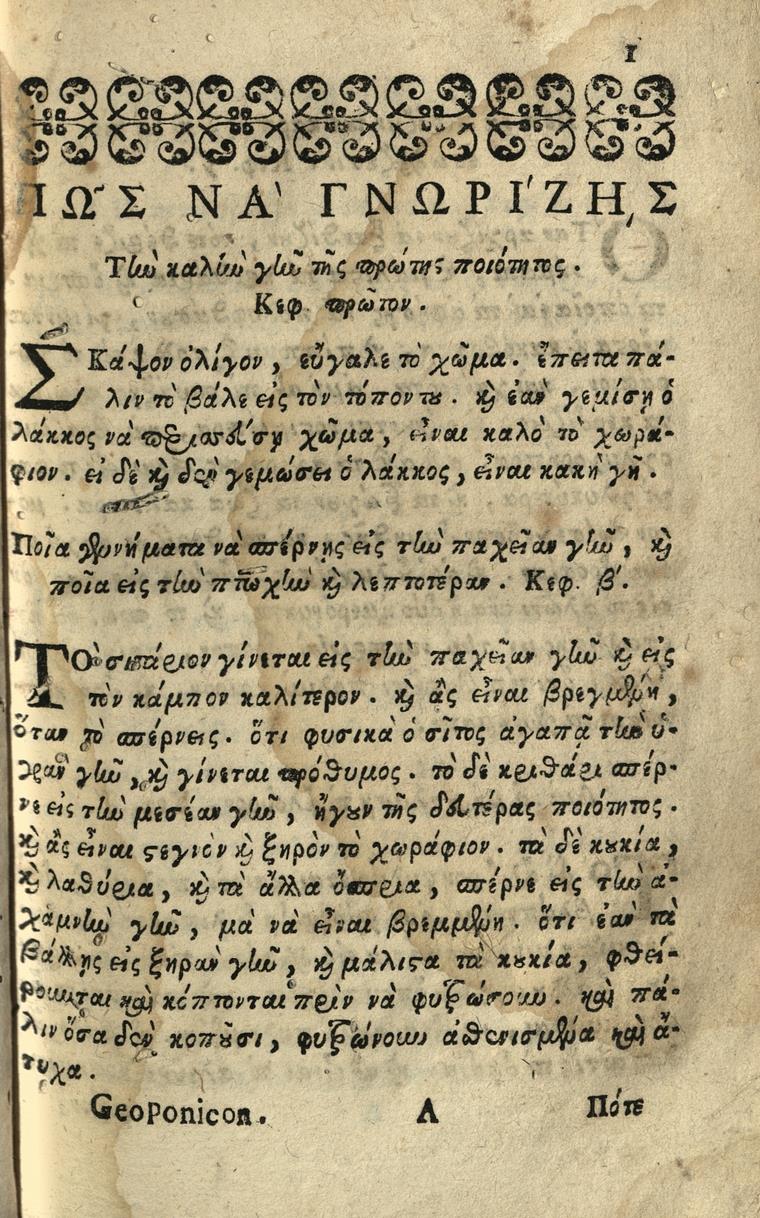 1
ΠΩ͂Σ ΝᾺ ΓΝΩΡΊΖῌΣ
Τὴν καλὴν γῆν τῆς πρώτης ποιότητος.
Κεφ. πρῶτον.
ΣΚάψον ὀλίγον, εὖγαλε τὸ χῶμα. ἔπειτα πά-
λιν τὸ βάλε εἰς τὸν τόπον του. καὶ ἐὰν γεμίσῃ ὁ
λάκκος νὰ περισσεύσῃ χῶμα, εἶναι καλὸ τὸ χωρά-
φιον. εἰ δὲ καὶ δὲν γεμώσει ὁ λάκκος, εἶναι κακὴ γῆ.
Ποῖα γεννήματα νὰ σπέρνῃς εἰς τὴν παχεῖαν γῆν, καὶ
ποῖα εἰς τὴν πτωχὴν καὶ λεπτοτέραν. Κεφ. β´.
ΤῸ σιτάριον γίνεται εἰς τὴν παχεῖαν γῆν καὶ εἰς
τὸν κάμπον καλίτερον. καὶ ἂς εἶναι βρεγμένη,
ὅταν τὸ σπέρνεις. ὅτι φυσικὰ ὁ σῖτος ἀγαπᾷ τὴν ὑ-
γρὰν γῆν, καὶ γίνεται πρόθυμος. τὸ δὲ κριθάρι σπέρ-
νε εἰς τὴν μεσέαν γῆν, ἤγουν τῆς δευτέρας ποιότητος.
καὶ ἂς εἶναι στεγνὸν καὶ ξηρὸν τὸ χωράφιον. τὰ δὲ κουκία,
καὶ λαθύρια, καὶ τὰ ἄλλα ὄσπρια, σπέρνε εἰς τὴν ἀ-
χαμνὴν γῆν, μὰ νὰ εἶναι βρεμμένη. ὅτι ἐὰν τὰ
βάλλῃς εἰς ξηρὰν γῆν, καὶ μάλιστα τὰ κουκία, φθεί-
ρουνται καὶ κόπτονται πρὶν νὰ φυτρώσουν. καὶ πά-
λιν ὅσα δὲν κοποῦσι, φυτρώνουν ἀσθενισμένα καὶ ἄ-
τυχα.
Geoponicon. A Πότε